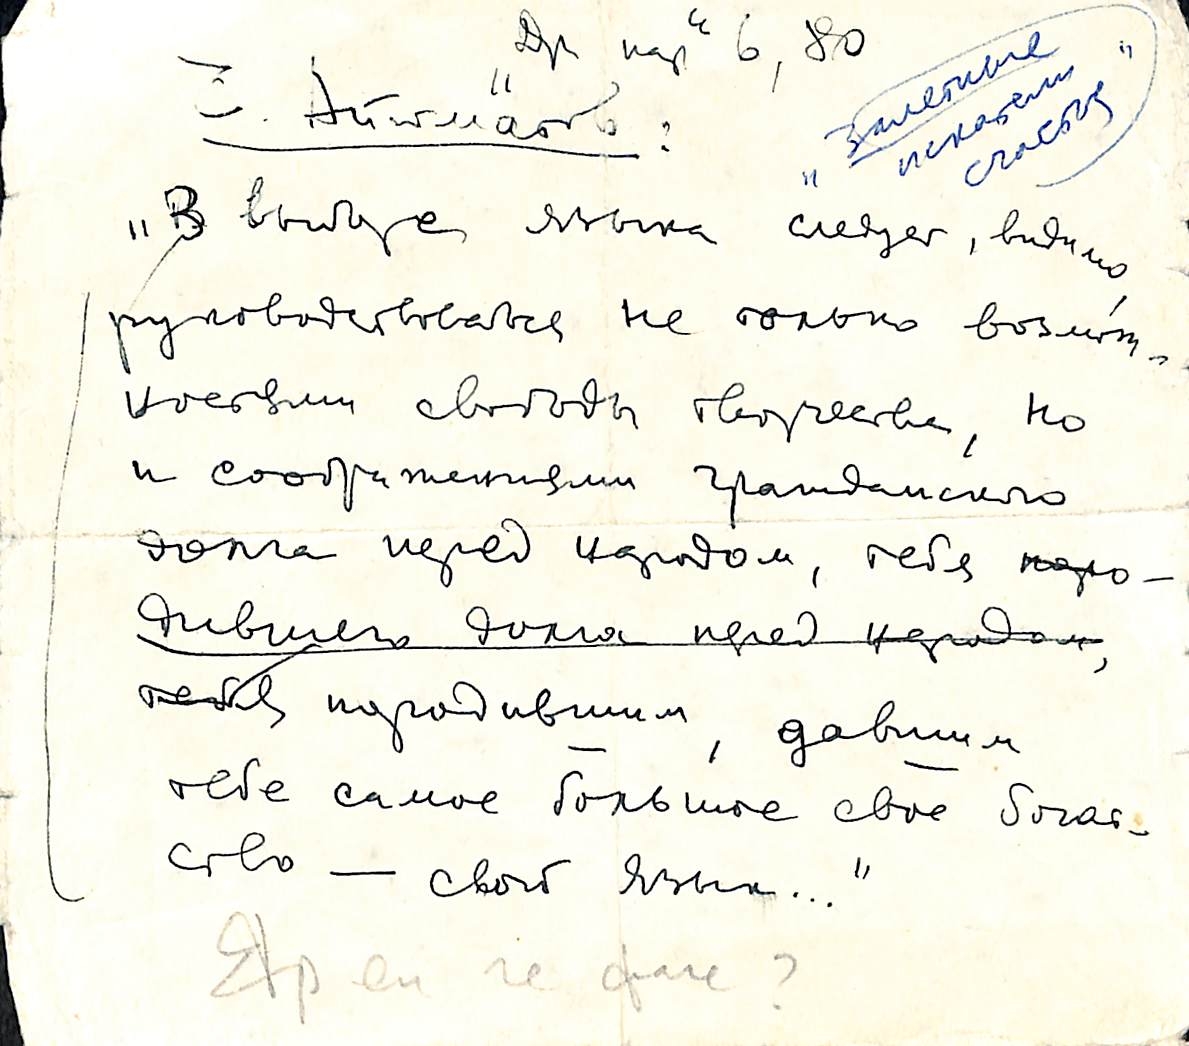 „Др нар“ 6, 80
Ч. Айтматов:
„Залетные
искатели
счастья“
„В выборе языка следует, видимо,
руководствоваться не только возмож-
ностями свободы творчества, но
и соображениями гражданского
долга перед народом, тебя поро-
дившего долга перед народом,
тебя породившим, давшим
тебе самое большое свое богат-
ство — свой язык..."